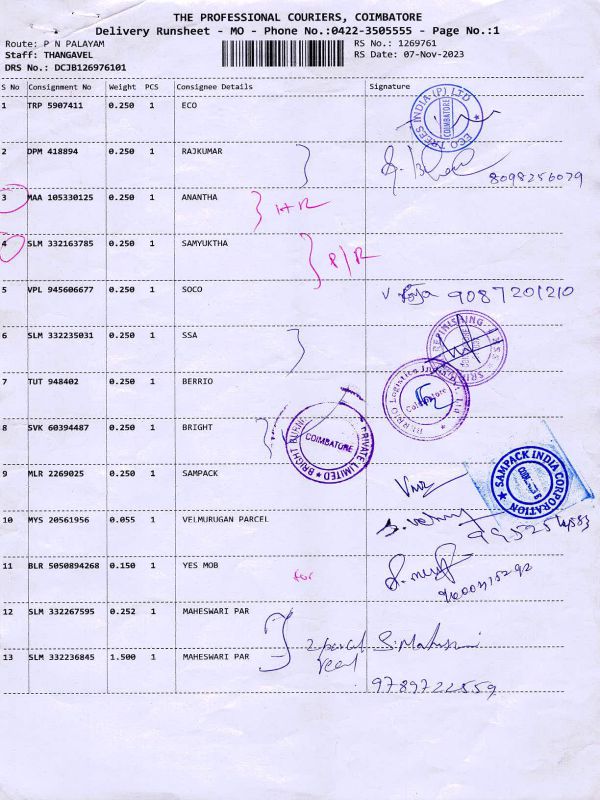 THE PROFESSIONAL COURIERS, COIMBATORE
Delivery Runsheet - MO - Phone No.:0422-3505555 - Page No.:1
Route: P N PALAYAM RS No.: 1269761
Staff: THANGAVEL RS Date: 07-Nov-2023
DRS No.: DCJB126976101
S No Consignment No Weight PCS Consignee Details Signature
1 TRP 5907411 0.250 1 ECO
ECO TREES INDIA (P) LTD COIMBATORE
2 DPM 418894 0.250 1 RAJKUMAR
8098256079
3 MAA 105330125 0.250 1 ANANTHA
4 SLM 332163785 0.250 1 SAMYUKTHA
P/R
5 VPL 945606677 0.250 1 SOCO 9087201210
6 SLM 332235031 0.250 1 SSA
7 TUT 948402 0.250 1 BERRIO
BERRIO Logistics India Pvt. Ltd Coimbatore
8 SVK 60394487 0.250 1 BRIGHT
COIMBATORE PRIVATE LIMITED
9 MLR 2269025 0.250 1 SAMPACK
SAMPACK INDIA CORPORATION
10 MYS 20561956 0.055 1 VELMURUGAN PARCEL
11 BLR 5050894268 0.150 1 YES MOB
for
12 SLM 332267595 0.252 1 MAHESWARI PAR
2 parcel
13 SLM 332236845 1.500 1 MAHESWARI PAR
9789722559